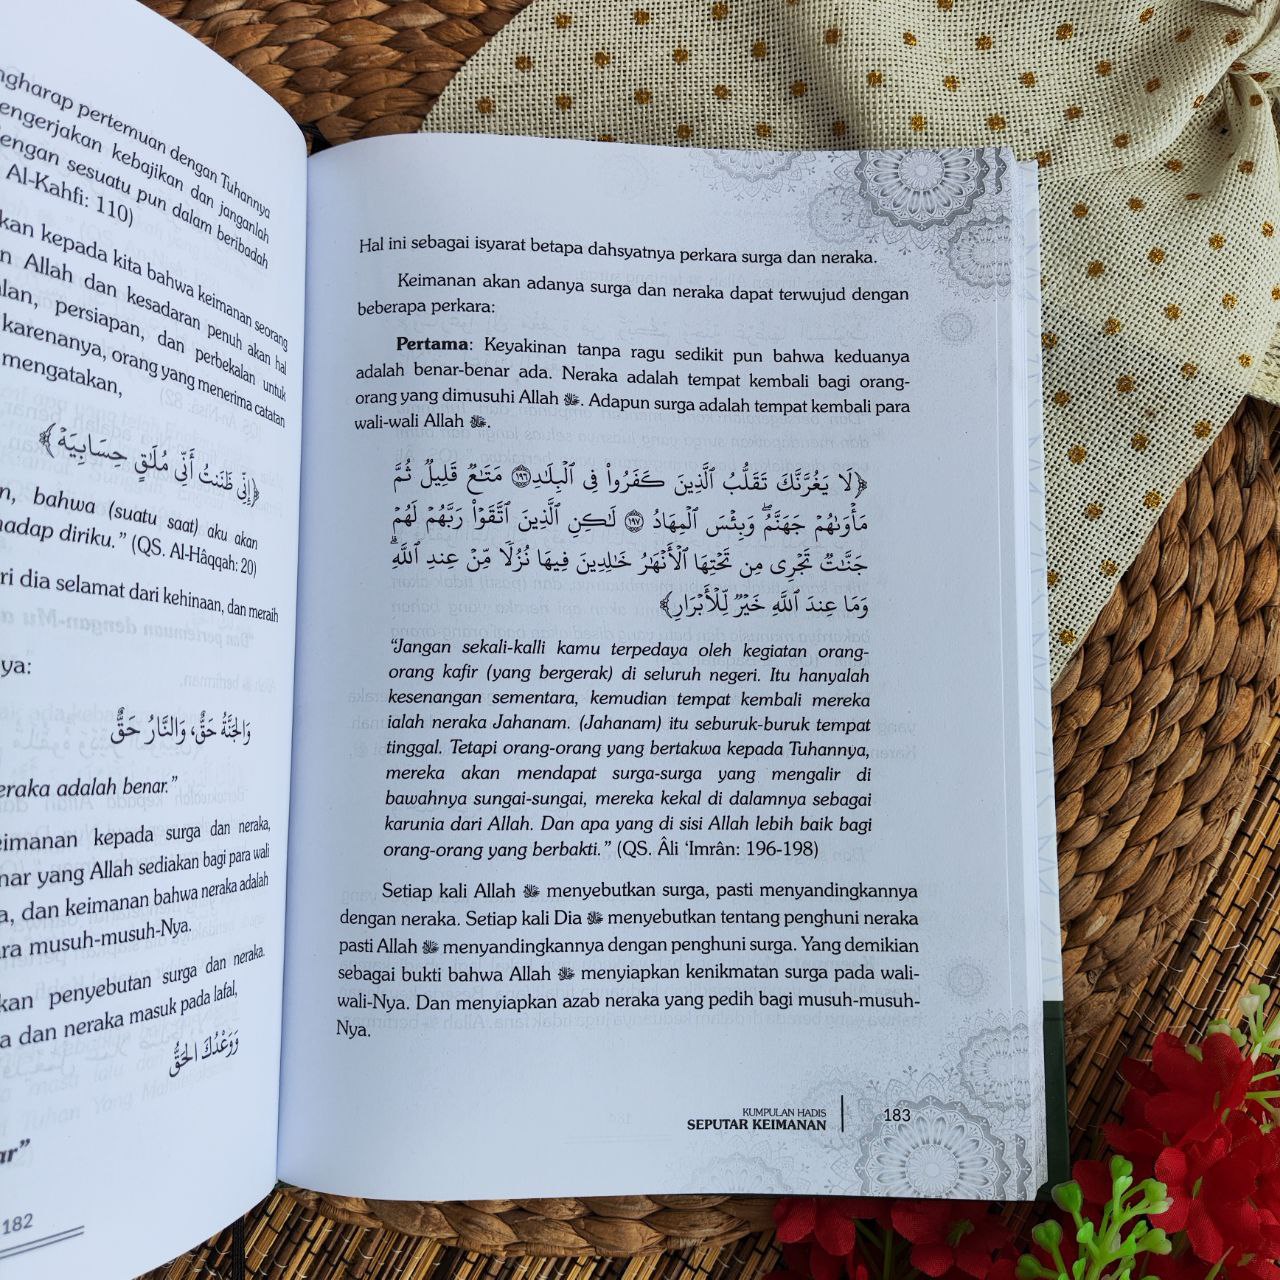 pertemuan dengan Tuhannya
kebajikan dan janganlah
sesuatu pun dalam beribadah
Al-Kahfi: 110)
kepada kita bahwa keimanan seorang
Allah dan kesadaran penuh akan hal
persiapan, dan perbekalan untuk
karenanya, orang yang menerima catatan
mengatakan,
﴿إِنِّي ظَنَنتُ أَنِّي مُلَٰقٍ حِسَابِيَهْ﴾
bahwa (suatu saat) aku akan
diriku.” (QS. Al-Hâqqah: 20)
dia selamat dari kehinaan, dan meraih
وَالجَنَّةُ حَقٌّ، وَالنَّارُ حَقٌّ
adalah benar.”
kepada surga dan neraka,
yang Allah sediakan bagi para wali
dan keimanan bahwa neraka adalah
musuh-musuh-Nya.
penyebutan surga dan neraka.
dan neraka masuk pada lafal,
وَوَعْدُكَ الحَقُّ
182
Hal ini sebagai isyarat betapa dahsyatnya perkara surga dan neraka.
Keimanan akan adanya surga dan neraka dapat terwujud dengan
beberapa perkara:
Pertama: Keyakinan tanpa ragu sedikit pun bahwa keduanya
adalah benar-benar ada. Neraka adalah tempat kembali bagi orang-
orang yang dimusuhi Allah ﷻ. Adapun surga adalah tempat kembali para
wali-wali Allah ﷻ.
﴿لَا يَغُرَّنَّكَ تَقَلُّبُ ٱلَّذِينَ كَفَرُواْ فِى ٱلۡبِلَٰدِ ١٩٦ مَتَٰعٌ قَلِيلٌ ثُمَّ
مَأۡوَىٰهُمۡ جَهَنَّمُۖ وَبِئۡسَ ٱلۡمِهَادُ ١٩٧ لَٰكِنِ ٱلَّذِينَ ٱتَّقَوۡاْ رَبَّهُمۡ لَهُمۡ
جَنَّٰتٌ تَجۡرِى مِن تَحۡتِهَا ٱلۡأَنۡهَٰرُ خَٰلِدِينَ فِيهَا نُزُلًا مِّنۡ عِندِ ٱللَّهِۗ
وَمَا عِندَ ٱللَّهِ خَيۡرٌ لِّلۡأَبۡرَارِ﴾
“Jangan sekali-kalli kamu terpedaya oleh kegiatan orang-
orang kafir (yang bergerak) di seluruh negeri. Itu hanyalah
kesenangan sementara, kemudian tempat kembali mereka
ialah neraka Jahanam. (Jahanam) itu seburuk-buruk tempat
tinggal. Tetapi orang-orang yang bertakwa kepada Tuhannya,
mereka akan mendapat surga-surga yang mengalir di
bawahnya sungai-sungai, mereka kekal di dalamnya sebagai
karunia dari Allah. Dan apa yang di sisi Allah lebih baik bagi
orang-orang yang berbakti.” (QS. Âli ‘Imrân: 196-198)
Setiap kali Allah ﷻ menyebutkan surga, pasti menyandingkannya
dengan neraka. Setiap kali Dia ﷻ menyebutkan tentang penghuni neraka
pasti Allah ﷻ menyandingkannya dengan penghuni surga. Yang demikian
sebagai bukti bahwa Allah ﷻ menyiapkan kenikmatan surga pada wali-
wali-Nya. Dan menyiapkan azab neraka yang pedih bagi musuh-musuh-
Nya.
KUMPULAN HADIS
SEPUTAR KEIMANAN
183